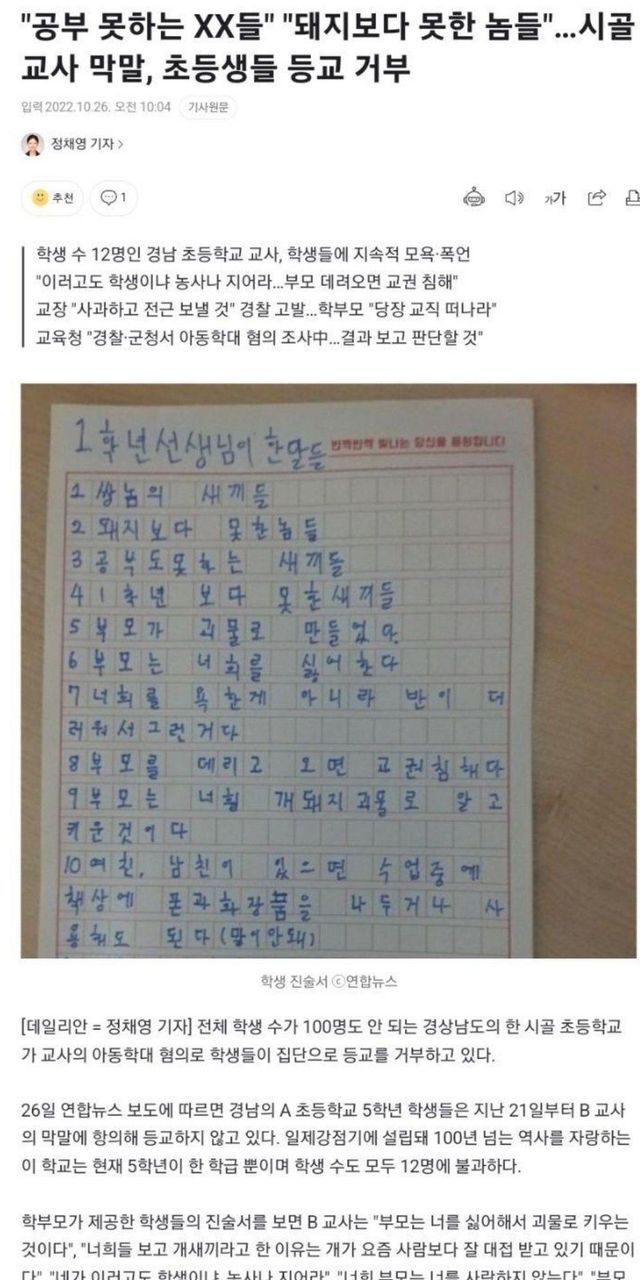 "공부 못하는 XX들" "돼지보다 못한 놈들"…시골
교사 막말, 초등생들 등교 거부
입력 2022.10.26. 오전 10:04 기사원문
정채영 기자 >
추천 1 가가
학생 수 12명인 경남 초등학교 교사, 학생들에 지속적 모욕·폭언
"이러고도 학생이냐 농사나 지어라…부모 데려오면 교권 침해"
교장 "사과하고 전근 보낼 것" 경찰 고발…학부모 "당장 교직 떠나라"
교육청 "경찰·군청서 아동학대 혐의 조사中…결과 보고 판단할 것"
1학년선생님이 한말들 반짝반짝 빛나는 당신을 응원합니다
1 쌍놈의 새끼들
2 돼지보다 못한놈들
3 공부도못하는 새끼들
4 1학년 보다 못한새끼들
5 부모가 괴물로 만들었다.
6 부모는 너희를 싫어한다
7 너희를 욕한게 아니라 반이 더
러워서그런거다
8 부모를 데리고 오면 교권침해다
9 부모는 너흴 개돼지괴물로 알고
키운것이다
10 여친, 남친이 있으면 수업중에
책상에 폰과화장품을 나두거나 사
용해도 된다(많이안돼)
학생 진술서 ⓒ연합뉴스
[데일리안 = 정채영 기자] 전체 학생 수가 100명도 안 되는 경상남도의 한 시골 초등학교
가 교사의 아동학대 혐의로 학생들이 집단으로 등교를 거부하고 있다.
26일 연합뉴스 보도에 따르면 경남의 A 초등학교 5학년 학생들은 지난 21일부터 B 교사
의 막말에 항의해 등교하지 않고 있다. 일제강점기에 설립돼 100년 넘는 역사를 자랑하는
이 학교는 현재 5학년이 한 학급 뿐이며 학생 수도 모두 12명에 불과하다.
학부모가 제공한 학생들의 진술서를 보면 B 교사는 "부모는 너를 싫어해서 괴물로 키우는
것이다", "너희들 보고 개새끼라고 한 이유는 개가 요즘 사람보다 잘 대접 받고 있기 때문이
다", "네가 이러고도 학생이냐, 농사나 지어라", "너희 부모는 너희를 사랑하지 않는다", "부모